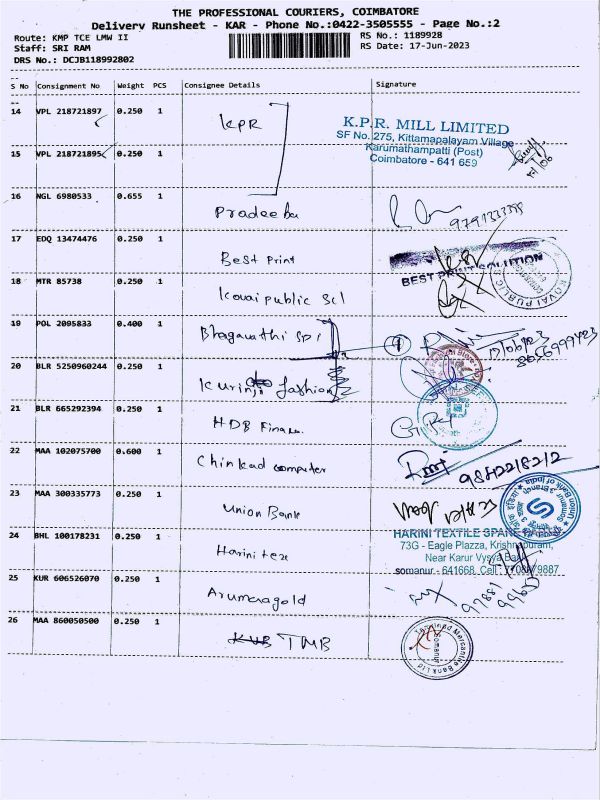 THE PROFESSIONAL COURIERS, COIMBATORE
Delivery Runsheet - KAR - Phone No.:0422-3505555 - Page No.:2
Route: KMP TCE LMW II
RS No.: 1189928
Staff: SRI RAM
RS Date: 17-Jun-2023
DRS No.: DCJB118992802
S No Consignment No Weight PCS Consignee Details Signature
14 VPL 218721897 0.250 1 KPR
K.P.R. MILL LIMITED
SF No. 275, Kittampalayam Village
Karumathampatti (Post)
Coimbatore - 641 659
15 VPL 218721895 0.250 1
16 NGL 6980533 0.655 1 Pradeeba
17 EDQ 13474476 0.250 1 Best Print
BEST PRINT SOLUTION
18 MTR 85738 0.250 1 Kovai public Scl
KOVAI PUBLIC
19 POL 2095833 0.400 1 Bhagavathi
20 BLR 5250960244 0.250 1 Kurinji fashion
21 BLR 665292394 0.250 1 HDB Finance
22 MAA 102075700 0.600 1 Chinkad computer
9842218212
23 MAA 300335773 0.250 1 Union Bank
Union Bank of India
24 BHL 100178231 0.250 1 Harini tex
HARINI TEXTILE SPARE
73G - Eagle Plazza, Krishnapuram,
Near Karur Vysya Bank
somanur - 641668. Cell
25 KUR 606526070 0.250 1 Arumugagold
26 MAA 860050500 0.250 1 KVB TMB
Tamilnad Mercantile Bank Ltd
Somanur